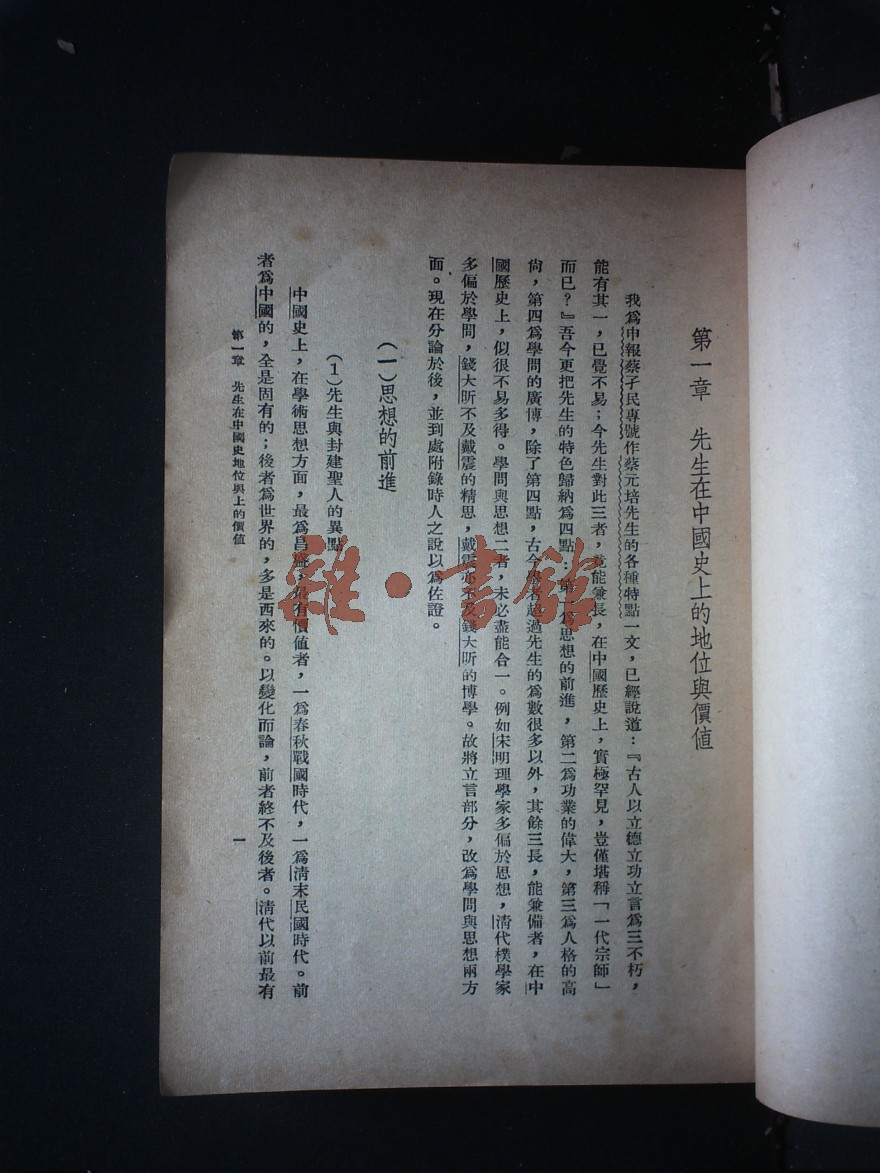 第一章　先生在中國史上的地位與價值
我爲申報蔡孑民專號作蔡元培先生的各種特點一文，已經說道：『古人以立德立功立言爲三不朽，
能有其一，已覺不易；今先生對此三者，竟能兼長，在中國歷史上，實極罕見，豈僅堪稱「一代宗師」
而已？』吾今更把先生的特色歸納爲四點：第一爲思想的前進，第二爲功業的偉大，第三爲人格的高
尙，第四爲學問的廣博，除了第四點，古今學者超過先生的爲數很多以外，其餘三長，能兼備者，在中
國歷史上，似很不易多得。學問與思想二者，未必盡能合一。例如宋明理學家多偏於思想，淸代樸學家
多偏於學問，錢大昕不及戴震的精思，戴震亦不及錢大昕的博學。故將立言部分，改爲學問與思想兩方
面。現在分論於後，並到處附錄時人之說以爲佐證。
（一）思想的前進
（1）先生與封建聖人的異點
中國史上，在學術思想方面，最爲昌盛，最有價値者，一爲春秋戰國時代，一爲淸末民國時代。前
者爲中國的，全是固有的；後者爲世界的，多是西來的。以變化而論，前者終不及後者。淸代以前最有
第一章　先生在中國史地位與上的價値
一
雜·書館